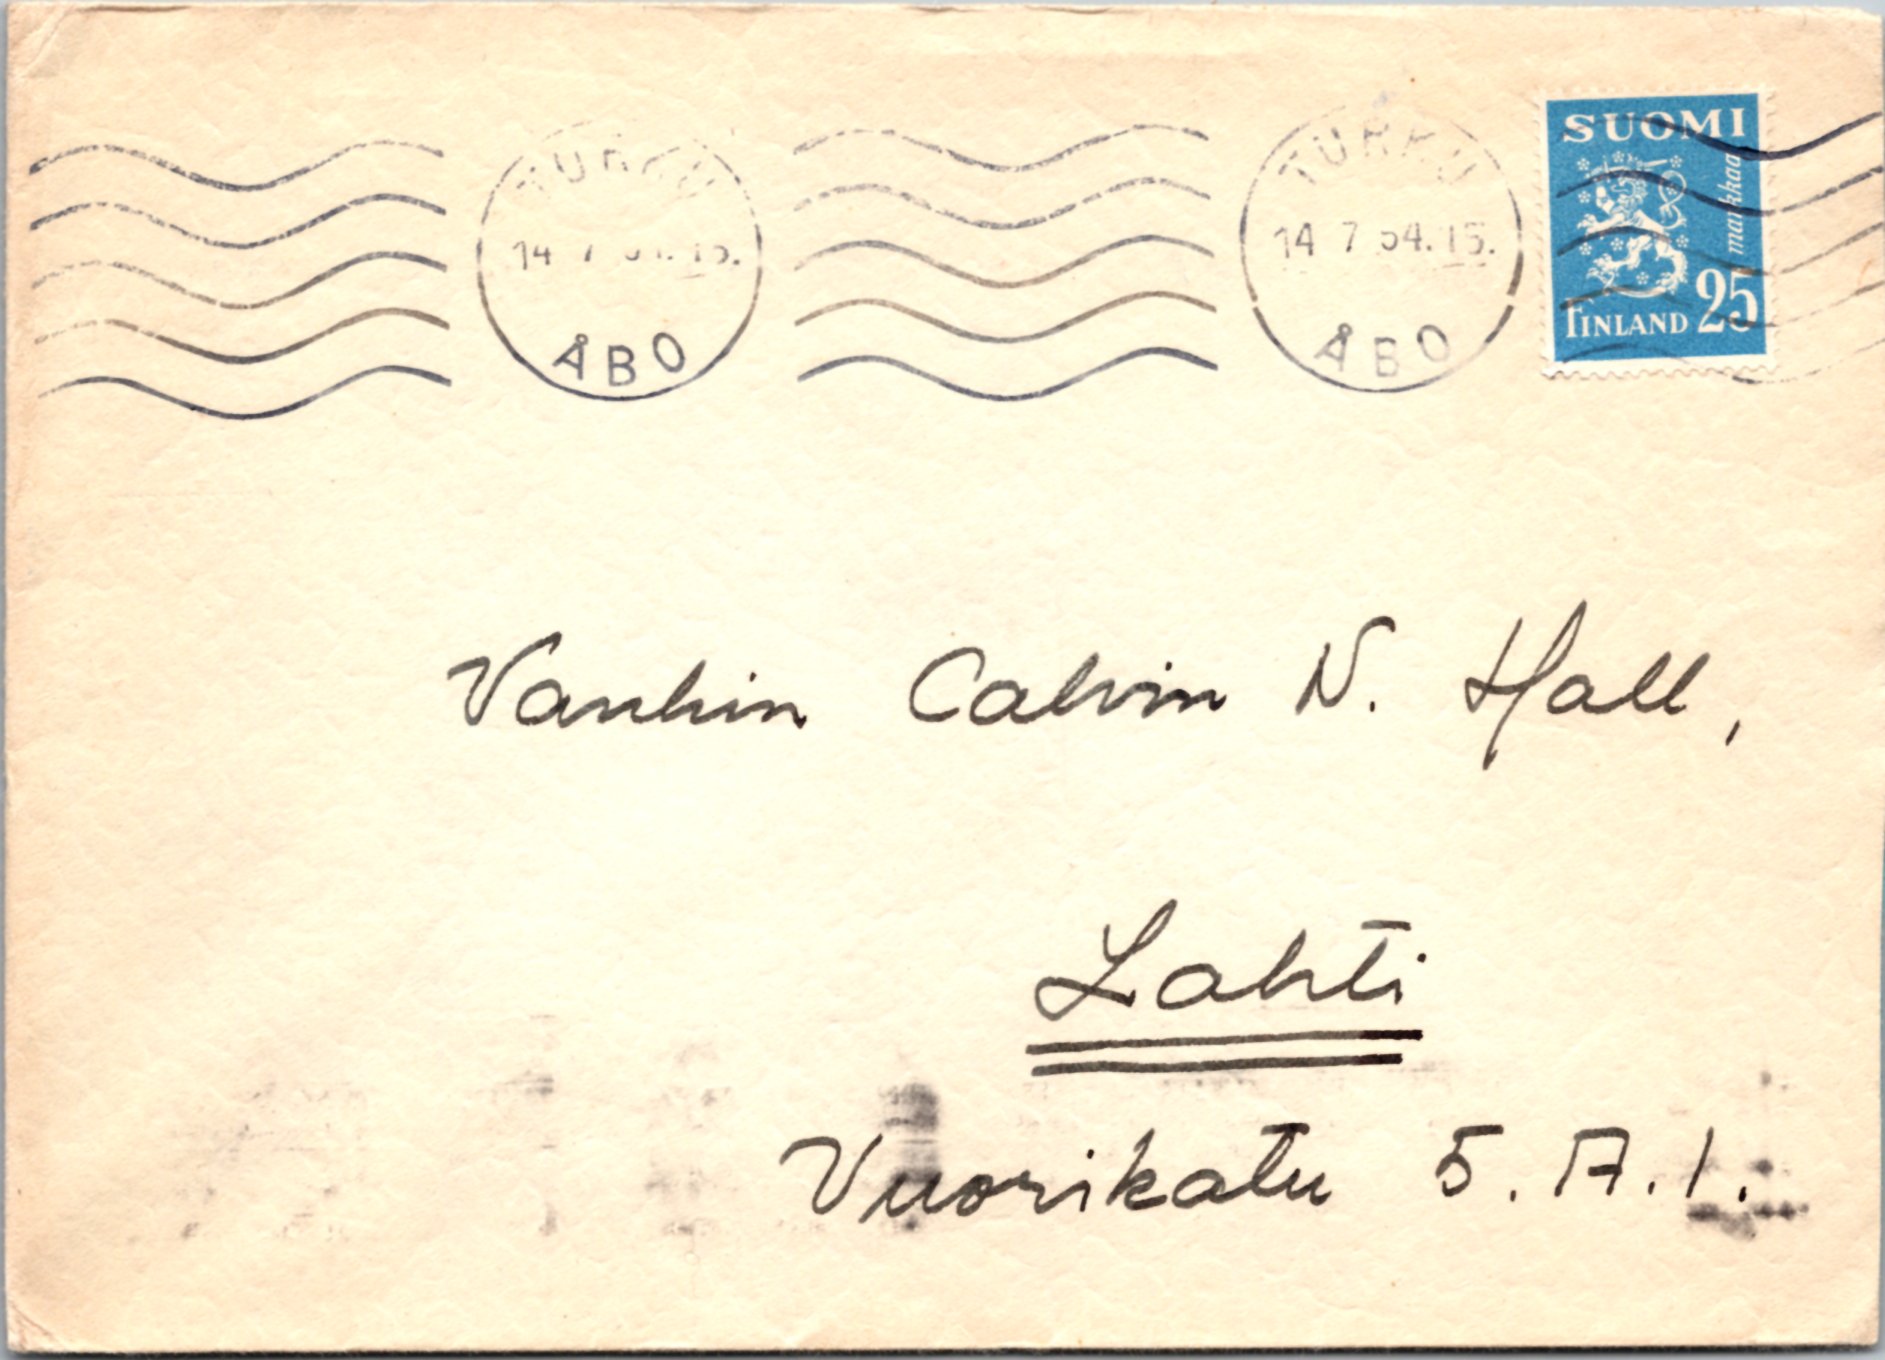 TURKU
14 7 54.15.
ÅBO
TURKU
14 7 54.15.
ÅBO
SUOMI
markkaa
FINLAND 25
Vanhin Calvin N. Hall,
Lahti
Vuorikatu 5. A. 1.